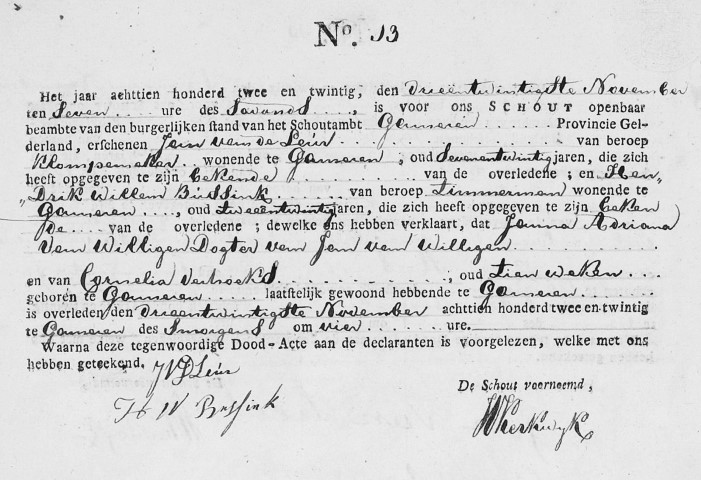 No. 13
Het jaar achttien honderd twee en twintig, den drieëntwintigste November
ten Seven .... ure des Savands ....., is voor ons SCHOUT openbaar
beambte van den burgerlijken stand van het Schoutambt Gameren ...... Provincie Gel-
derland, erschenen Jan van de Leur ............ van beroep
Klompemaker .. wonende te Gameren ; oud Sevenentwintig jaren, die zich
heeft opgegeven te zijn bekende ...... van de overledene ; en Hen„
„Drik Willem Bussink ........ van beroep Timmerman wonende te
Gameren ...., oud tweeëntwintig jaren, die zich heeft opgegeven te zijn beken
de ... van de overledene ; dewelke ons hebben verklaart, dat Janna Adriana
van Willigen Dogter van Jan van Willigen ..........
en van Cornelia Verhoeks ............ ; oud tien weken ..
geboren te Gameren ..... laatstelijk gewoond hebbende te Gameren .......
is overleden den drieentwintigste November achttien honderd twee en twintig
te Gameren des Smorgens om vier ....... ure.
Waarna deze tegenwoordige Dood-Acte aan de declaranten is voorgelezen, welke met ons
hebben geteekend. JVD Leur
De Schout voornoemd,
H W Bussink